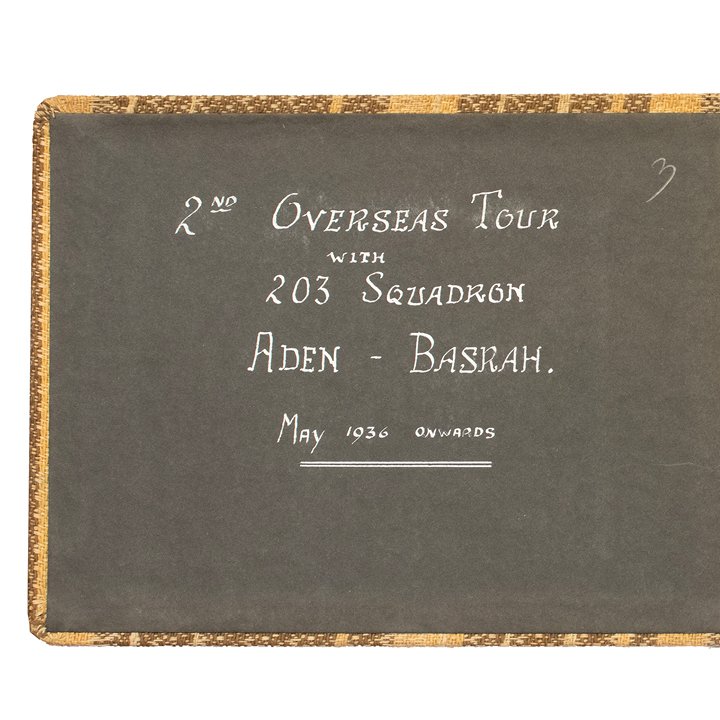 3
2ND OVERSEAS TOUR
WITH
203 SQUADRON
ADEN - BASRAH.
MAY 1936 ONWARDS